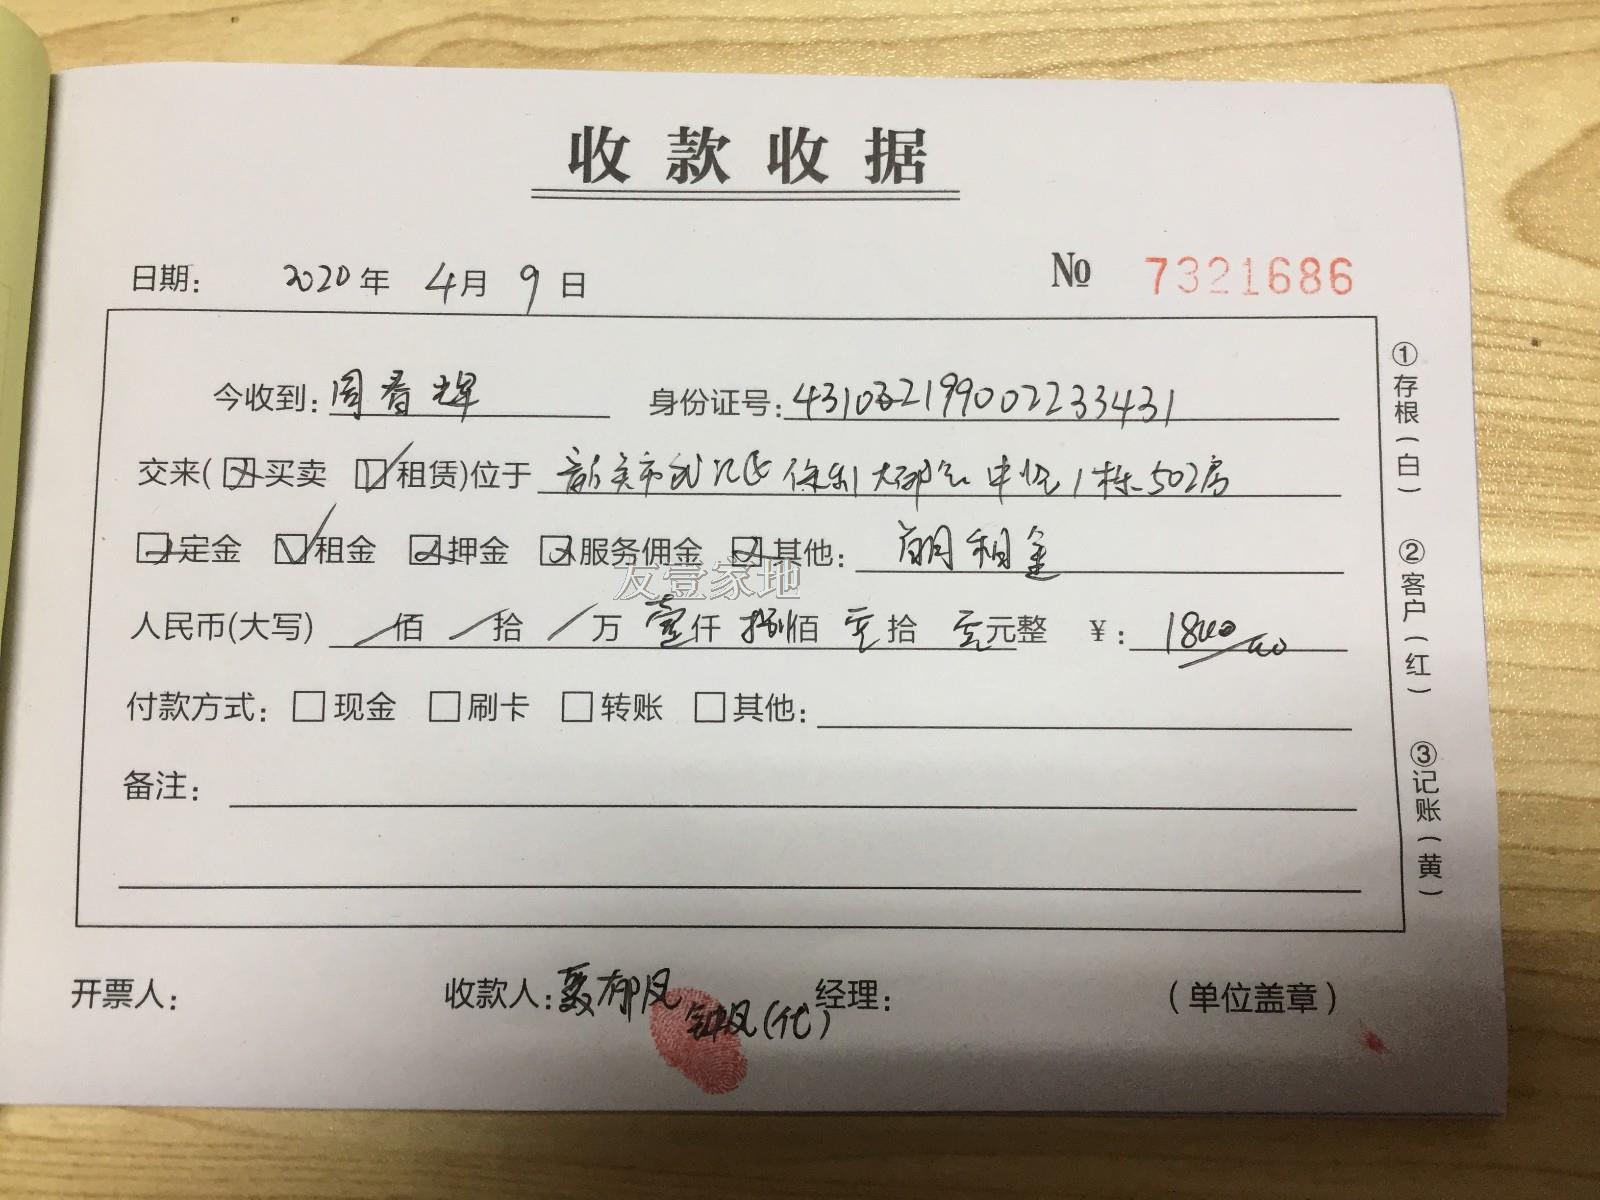 收款收据
日期： 2020年 4月 9日 № 7321686
今收到：周春辉 身份证号：431032199002233431
交来(☒买卖 ☑租赁)位于 韶关市武江区保利大都会中悦1栋502房
☒定金 ☑租金 ☒押金 ☒服务佣金 ☒其他： 首月租金
友壹家地
人民币(大写) /佰 /拾 /万 壹仟 捌佰 零拾 零元整 ￥：1800.00
付款方式：□现金 □刷卡 □转账 □其他：
备注：
开票人： 收款人：聂郁凤 经理： （单位盖章）
钟凤(代)
①存根(白) ②客户(红) ③记账(黄)